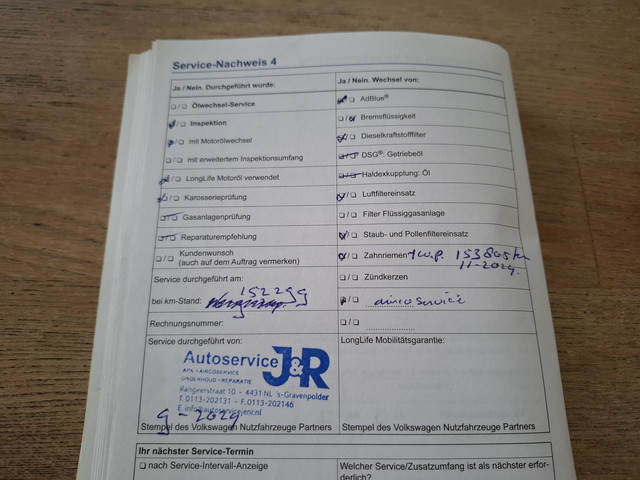 Service-Nachweis 4
Ja / Nein. Durchgeführt wurde:
/ Ölwechsel-Service
/ Inspektion
/ mit Motorölwechsel
/ mit erweitertem Inspektionsumfang
/ LongLife Motoröl verwendet
/ Karosserieprüfung
/ Gasanlagenprüfung
/ Reparaturempfehlung
/ Kundenwunsch
(auch auf dem Auftrag vermerken)
Service durchgeführt am:
152299
bei km-Stand:
Rechnungsnummer:
Service durchgeführt von:
Autoservice J&R
APK - AIRCOSERVICE
ONDERHOUD - REPARATIE
Kamperstraat 10 - 4431 NL 's-Gravenpolder
T. 0113-202131 - F. 0113-202146
E. info@autoservicejenr.nl
9-2024
Stempel des Volkswagen Nutzfahrzeuge Partners
Ja / Nein. Wechsel von:
/ AdBlue®
/ Bremsflüssigkeit
/ Dieselkraftstofffilter
/ DSG®: Getriebeöl
/ Haldexkupplung: Öl
/ Luftfiltereinsatz
/ Filter Flüssiggasanlage
/ Staub- und Pollenfiltereinsatz
/ Zahnriemen + w.p.
11-2024.
/ Zündkerzen
/ airco service
/
LongLife Mobilitätsgarantie:
Stempel des Volkswagen Nutzfahrzeuge Partners
Ihr nächster Service-Termin
nach Service-Intervall-Anzeige
Welcher Service/Zusatzumfang ist als nächster erfor-
derlich?